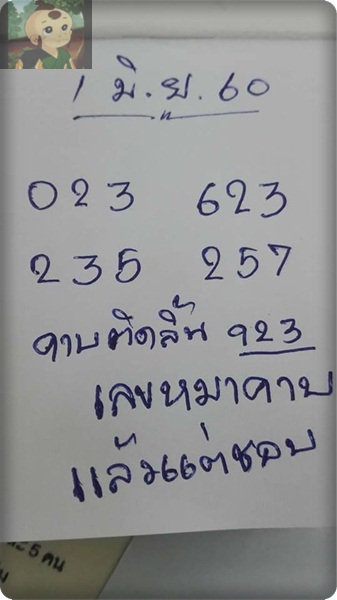 1 มิ.ย. 60
023 623
235 257
คาบติดลิ้น 923
เลขหมาคาบ
แล้วแต่ชอบ
5 คน